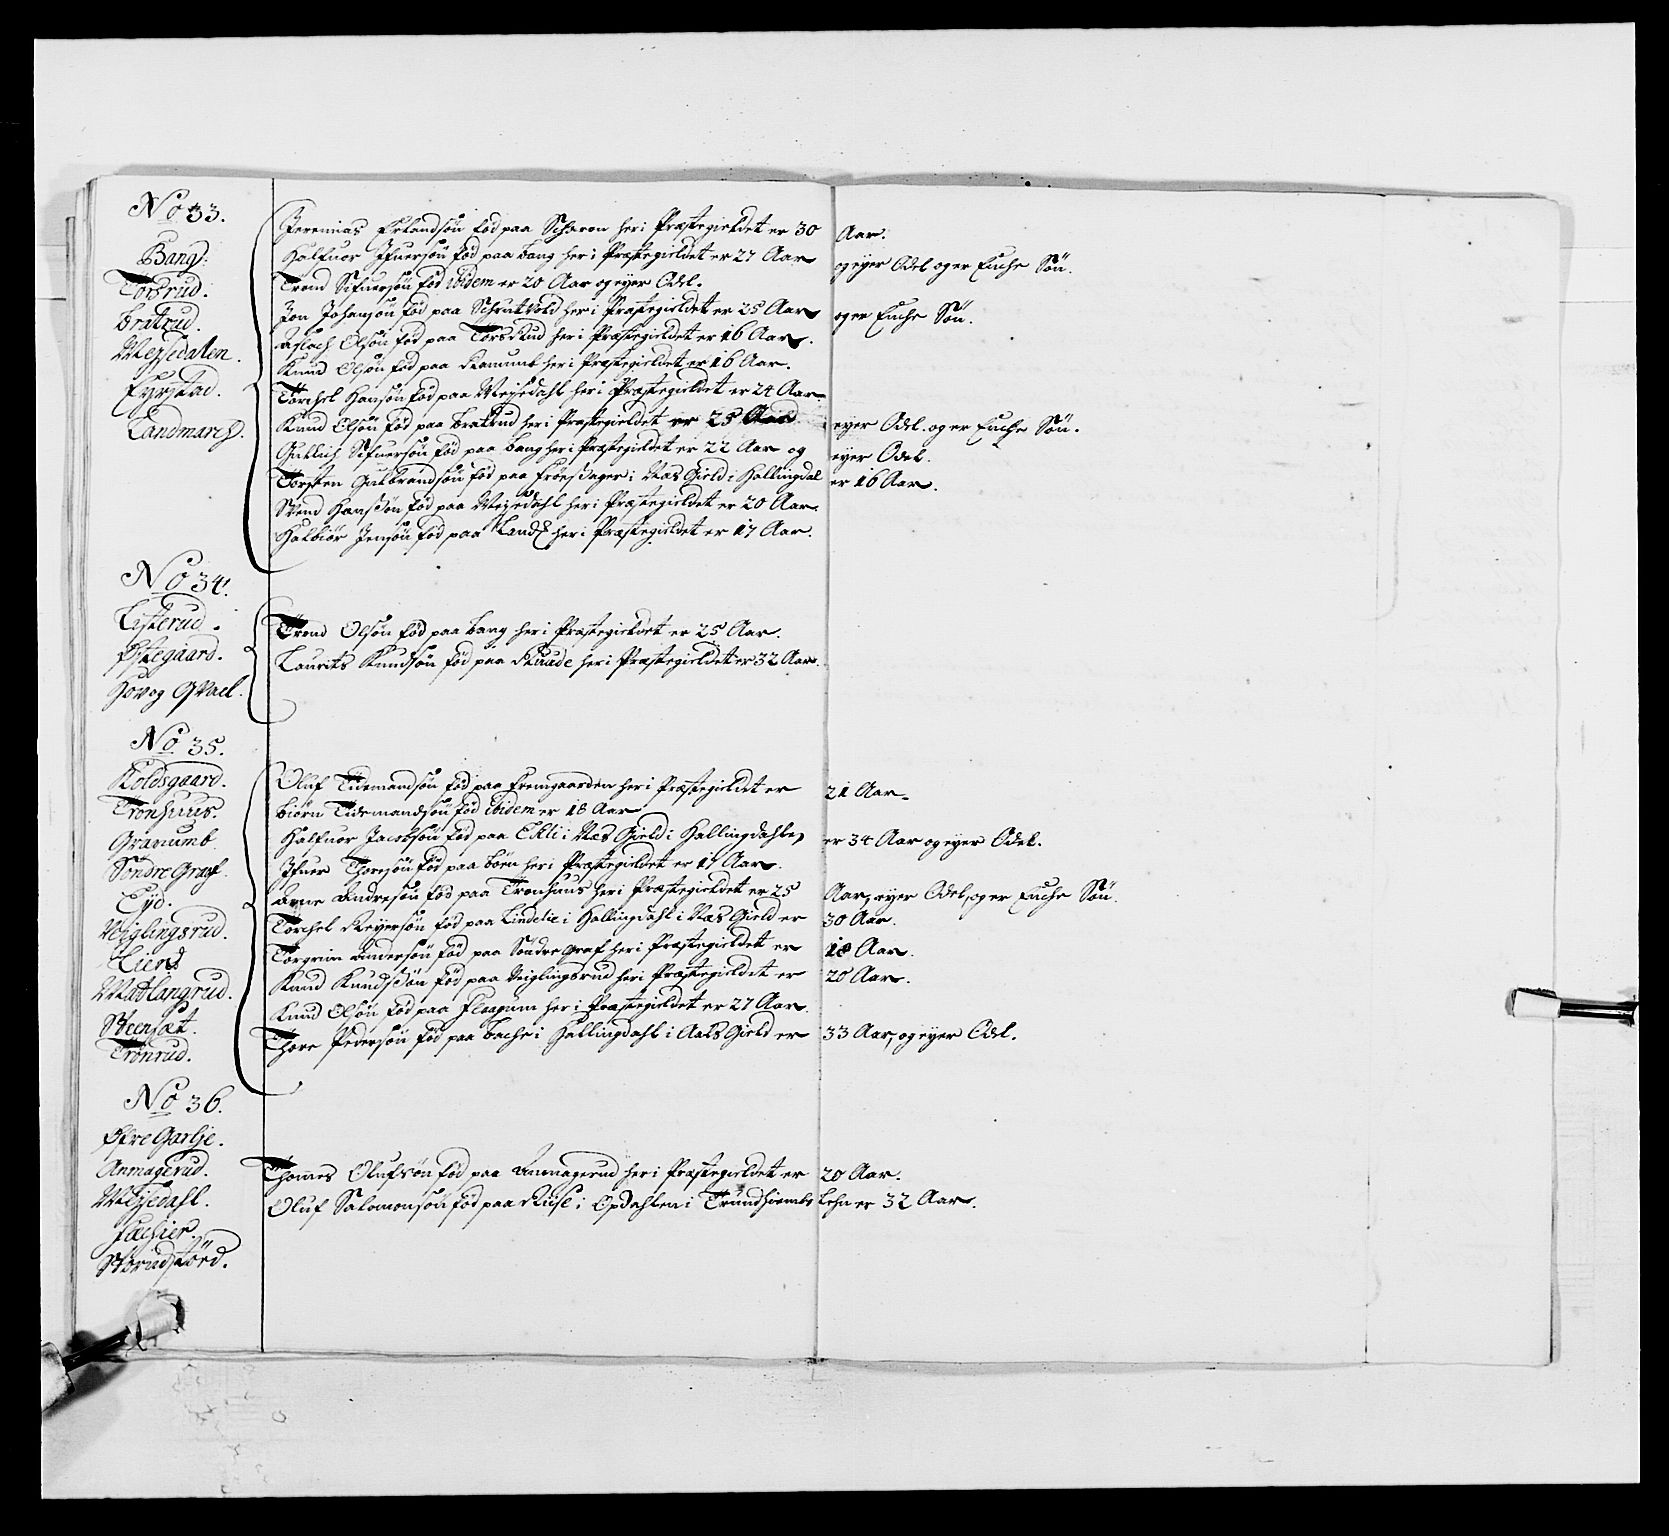 No 33.
Bang.
Torsrud.
Bratrud.
Mejsedalen.
Fyrstad.
Landmarch.
Jeremias Erlandsøn fød paa Scharon her i Præstegieldet er 30 Aar.
Halfuor Ifuersøn fød paa Bang her i Præstegieldet er 27 Aar og eyer Odel og er Enche Søn.
Trond Sifuersøn fød ibidem er 20 Aar og eyer Odel.
Jon Johansøn fød paa Schrutvold her i Præstegieldet er 25 Aar og er Enche Søn.
Aslach Olsøn fød paa Torsrud her i Præstegieldet er 16 Aar.
Knud Olsøn fød paa Ramumb her i Præstegieldet er 16 Aar.
Torchel Hansøn fød paa Mejsedahl her i Præstegieldet er 24 Aar
Knud Olsøn fød paa Bratrud her i Præstegieldet er 25 Aar eyer Odel. og er Enche Søn.
Gutlich Sifuersøn fød paa Bang her i Præstegieldet er 22 Aar og eyer Odel.
Torsten Gulbrandsøn fød paa i Næs Gield i Hallingdal er 16 Aar.
Svend Hansøn fød paa Mejsedahl her i Præstegieldet er 20 Aar.
Halbiør Jensøn fød paa Lande her i Præstegieldet er 17 Aar.
No 34.
Listerud.
Østegaard.
Hov og Qvael.
Trond Olsøn fød paa Bang her i Præstegieldet er 25 Aar.
Laurits Knudsøn fød paa Ruude her i Præstegieldet er 32 Aar.
No 35.
Koldsgaard.
Tronhuus.
Granumb.
Søndre Graf.
Eyd.
Veiglingsrud.
Lien.
Matlangrud.
Steensæt.
Tronrud.
Oluf Tidemandsøn fød paa Fremgaarden her i Præstegieldet er 21 Aar.
Biørn Tidemandsøn fød ibidem er 18 Aar
Halfuor Jacobsøn fød paa Eklie i Næs Gield i Hallingdahlen er 34 Aar og eyer Odel.
Ifuer Thoresøn fød paa Bøen her i Præstegieldet er 17 Aar.
Arne Andresøn fød paa Tronhuus her i Præstegieldet er 25 Aar, eyer Odel, og er Enche Søn.
Torchel Reyersøn fød paa Lindelie i Hallingdahl i Næs Gield er 30 Aar.
Torgrim Andersøn fød paa Søndre Graf her i Præstegieldet er 18 Aar.
Knud Knudsøn fød paa Veiglingsrud her i Præstegieldet er 20 Aar.
Knud Olsøn fød paa Flaagum her i Præstegieldet er 27 Aar.
Thore Pedersøn fød paa Bache i Hallingdahl i Aals Gield er 33 Aar, og eyer Odel.
No 36.
Øfre Garlje.
Anmagerud.
Mejsedahl.
Storud
Thomes Olufsøn fød paa Anmagerud her i Præstegieldet er 20 Aar.
Oluf Salomonsøn fød paa Riise i Opdahlen i Trundhiembs Lehn er 32 Aar.